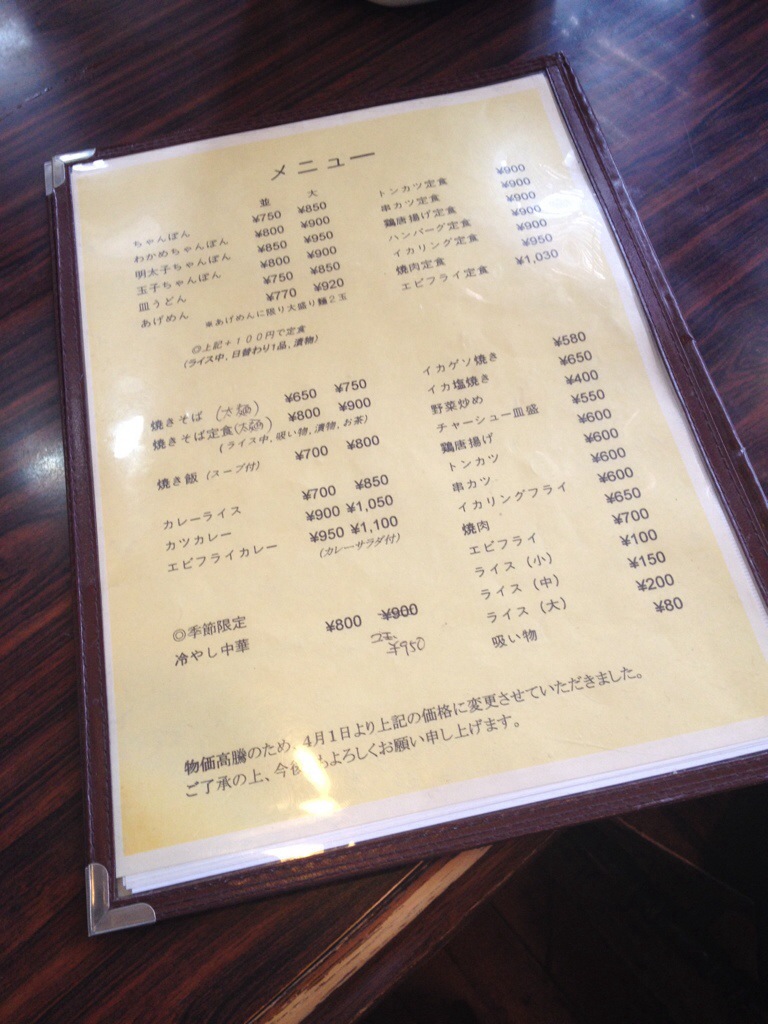 メニュー
並 大
ちゃんぽん ¥750 ¥850
わかめちゃんぽん ¥800 ¥900
明太子ちゃんぽん ¥850 ¥950
玉子ちゃんぽん ¥800 ¥900
皿うどん ¥750 ¥850
あげめん ¥770 ¥920
※あげめんに限り大盛り麺2玉
◎上記+100円で定食
(ライス中、日替わり1品、漬物)
焼きそば (太麺) ¥650 ¥750
焼きそば定食(太麺) ¥800 ¥900
(ライス中、吸い物、漬物、お茶)
焼き飯 (スープ付) ¥700 ¥800
カレーライス ¥700 ¥850
カツカレー ¥900 ¥1,050
エビフライカレー ¥950 ¥1,100
(カレーサラダ付)
◎季節限定
冷やし中華 ¥800 ¥900
2玉
¥950
トンカツ定食 ¥900
串カツ定食 ¥900
鶏唐揚げ定食 ¥900
ハンバーグ定食 ¥900
イカリング定食 ¥900
焼肉定食 ¥950
エビフライ定食 ¥1,030
イカゲソ焼き ¥580
イカ塩焼き ¥650
野菜炒め ¥400
チャーシュー皿盛 ¥550
鶏唐揚げ ¥600
トンカツ ¥600
串カツ ¥600
イカリングフライ ¥600
焼肉 ¥650
エビフライ ¥700
ライス (小) ¥100
ライス (中) ¥150
ライス (大) ¥200
吸い物 ¥80
物価高騰のため、4月1日より上記の価格に変更させていただきました。
ご了承の上、今後もよろしくお願い申し上げます。